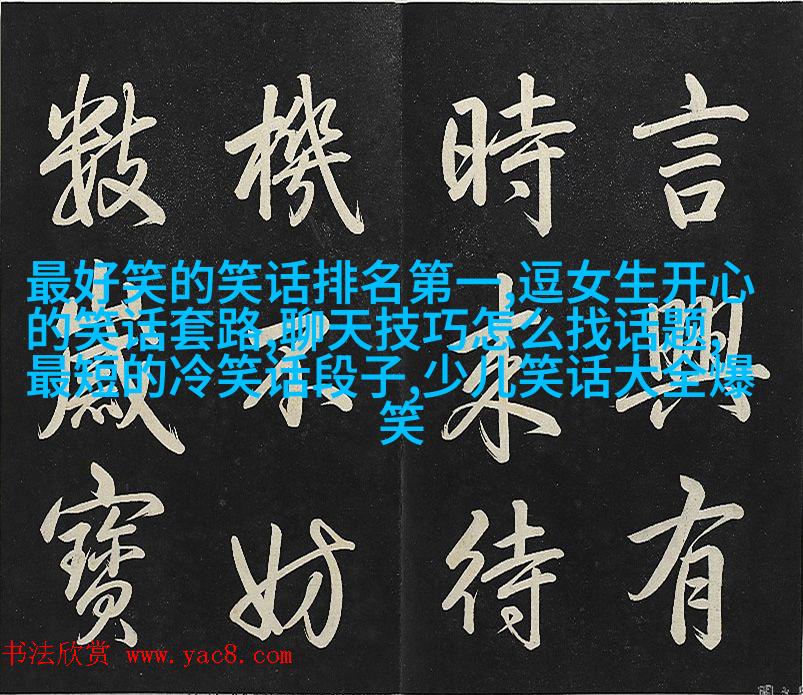 言興有
時来待
機不妨
數寶
最好笑的笑话排名第一,逗女生开心
的笑话套路,聊天技巧怎么找话题,
最短的冷笑话段子,少儿笑话大全爆
笑
书法欣赏 www.yac8.com